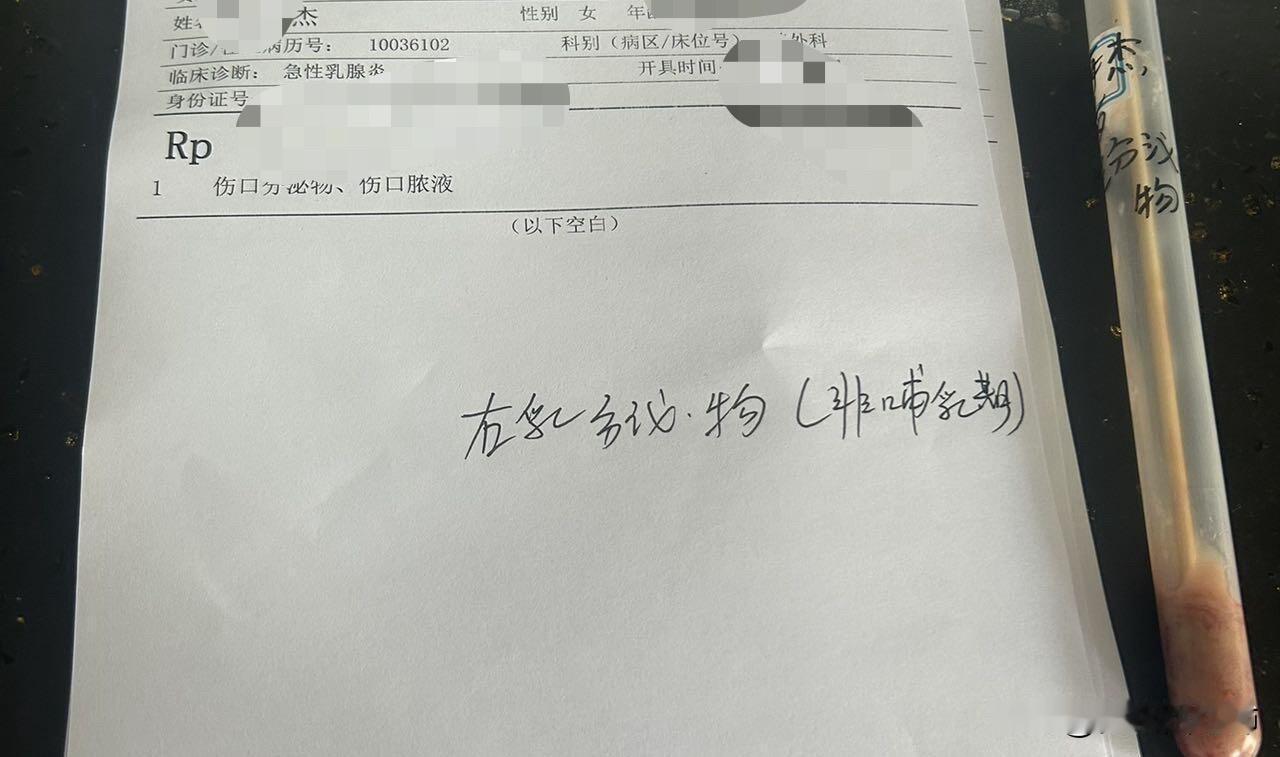 杰 性别 女 年
门诊 病历号: 10036102 科别(病区/床位号) 外科
临床诊断: 急性乳腺炎 开具时间
身份证号
Rp
1 伤口分泌物、伤口脓液
(以下空白)
右乳分泌物(非哺乳期)
杰
分泌
物